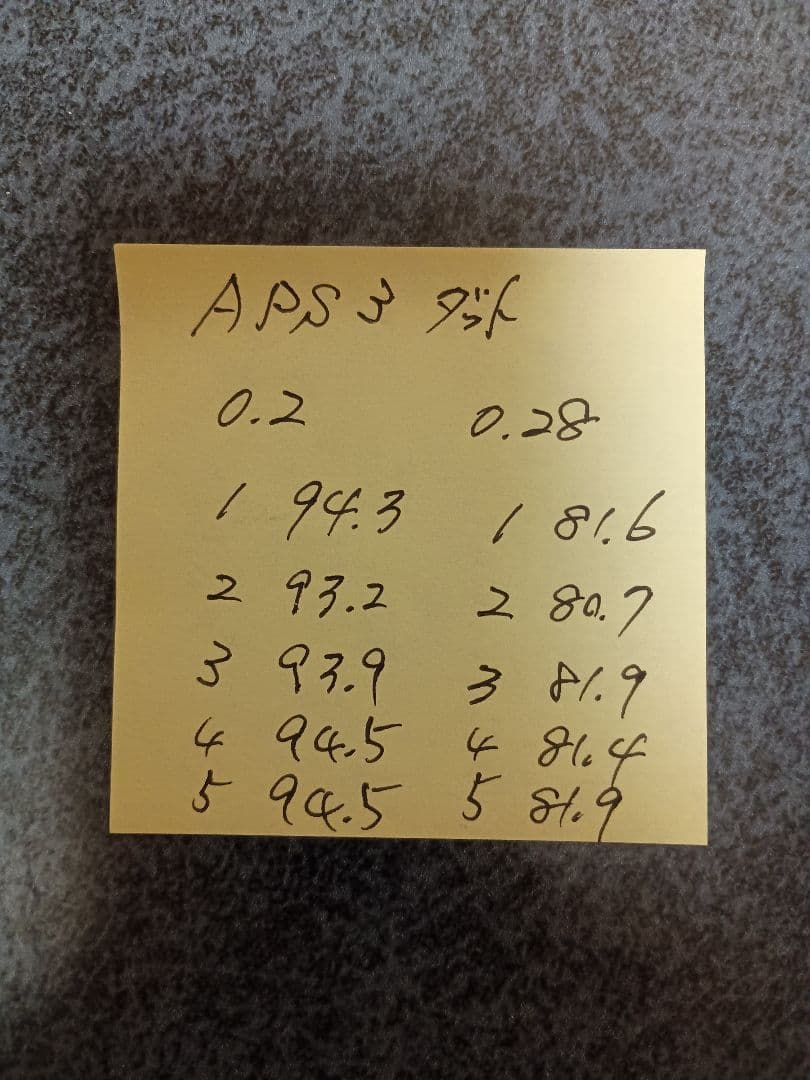 APS3 ダット
0.2 0.28
1 94.3 1 81.6
2 93.2 2 80.7
3 93.9 3 81.9
4 94.5 4 81.4
5 94.5 5 81.9